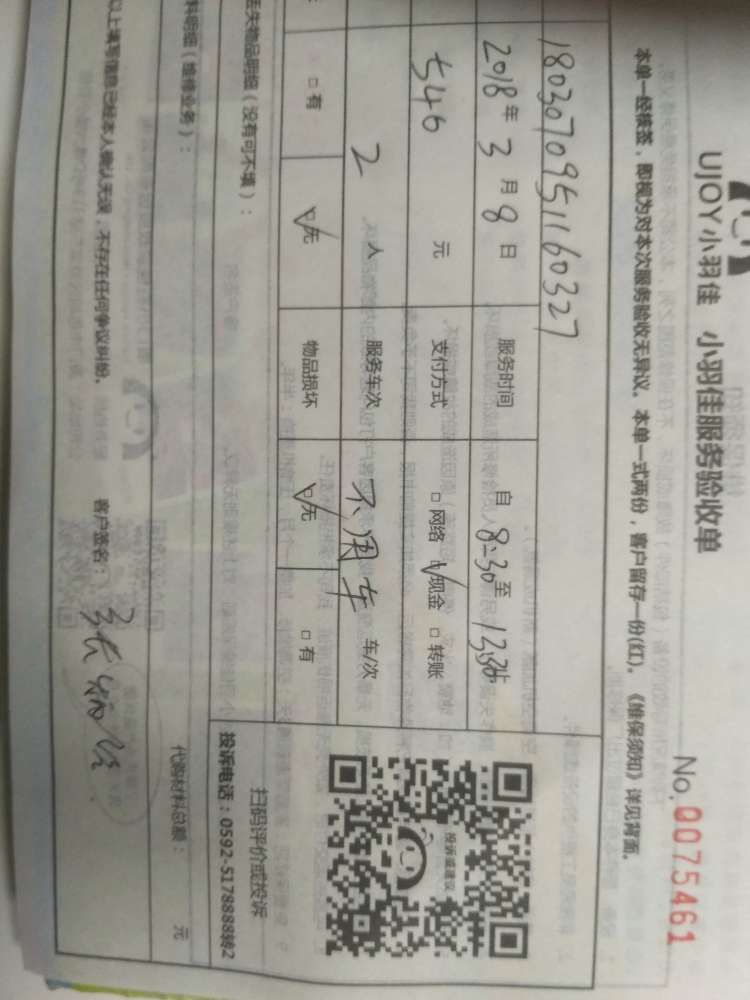 UJOY小羽佳 小羽佳服务验收单
No.0075461
本单一经接签，即视为对本次服务验收无异议。本单一式两份，客户留存一份(红)。《维保须知》详见背面。
1803070951160327
2018年3月8日 服务时间 自8:30至
546元 支付方式 □网络 ☑现金 □转账
2人 服务车次 不用车 车/次
□有 ☑无 物品损坏 ☑无 □有
投诉或建议
扫码评价或投诉
投诉电话：0592-5178888转2
丢失物品明细（没有可不填）：
料明细（维修业务）：
代购材料总额： 元
以上填写信息已经本人确认无误，不存在任何争议纠纷。 客户签名：